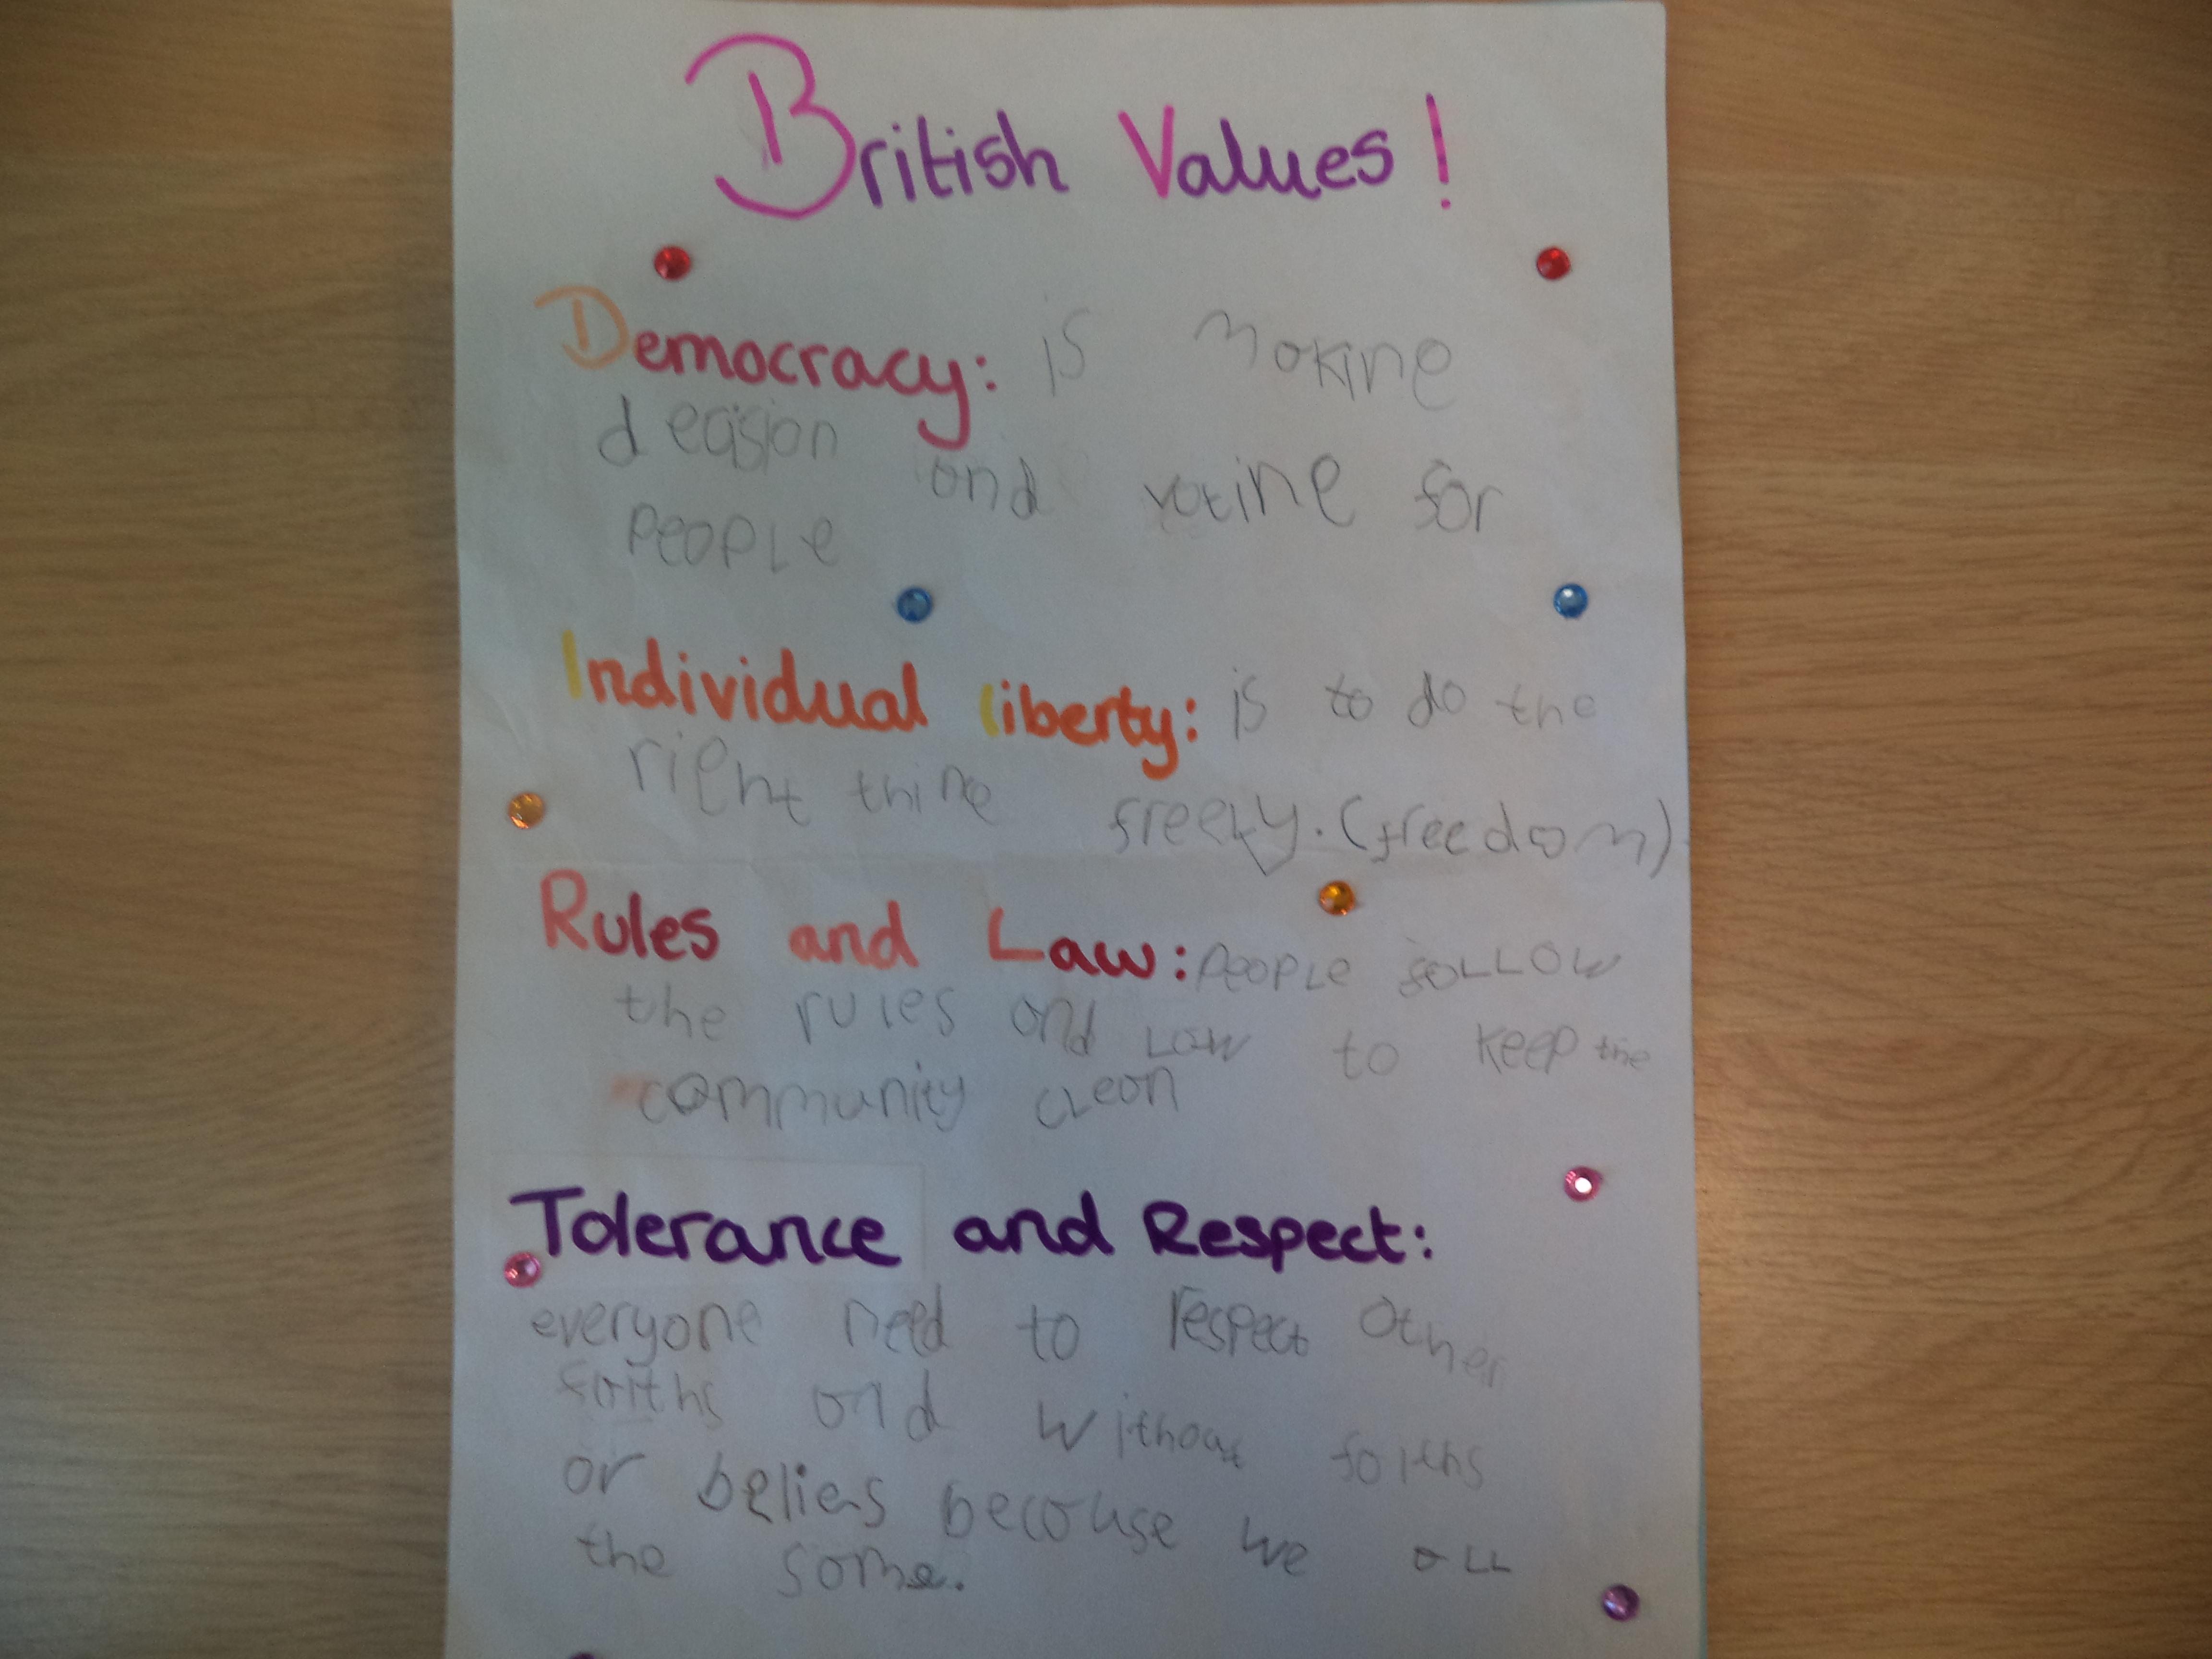 British Values!
Democracy: is making
decision and voting for
people
Individual liberty: is to do the
right thing freely. (freedom)
Rules and Law: people follow
the rules and law to keep the
community clean
Tolerance and Respect:
everyone need to respect other
faiths and without faiths
or beliefs because we all
the same.